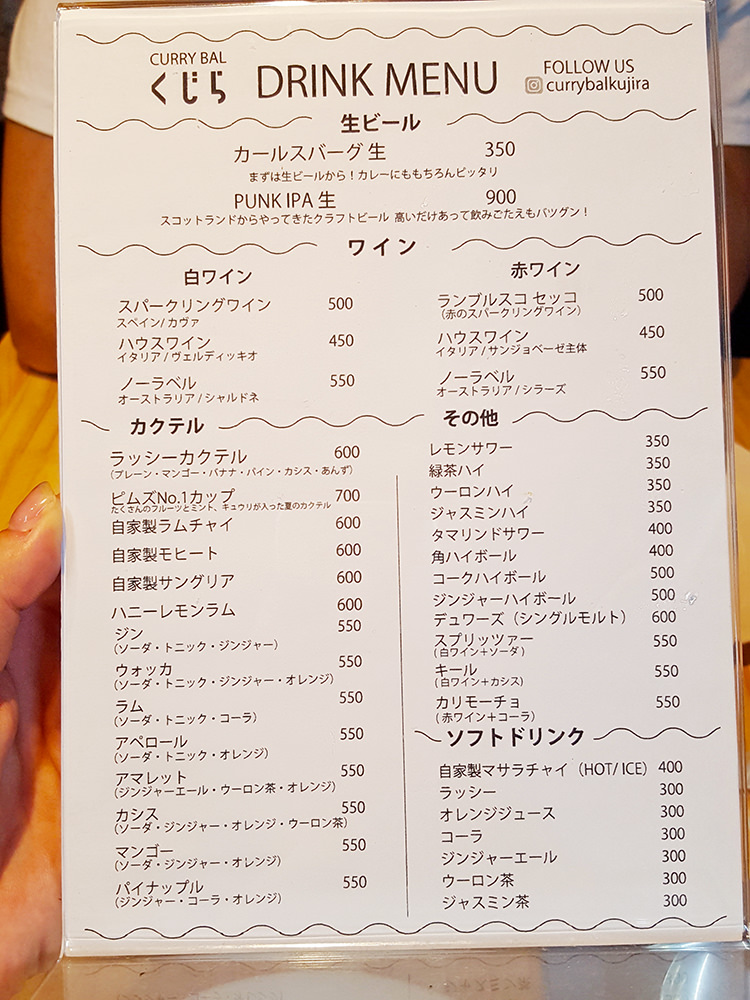 CURRY BAL
くじら
DRINK MENU
FOLLOW US
currybalkujira
生ビール
カールスバーグ 生 350
まずは生ビールから！カレーにももちろんピッタリ
PUNK IPA 生 900
スコットランドからやってきたクラフトビール 高いだけあって飲みごたえもバツグン！
ワイン
白ワイン
スパークリングワイン 500
スペイン/ カヴァ
ハウスワイン 450
イタリア / ヴェルディッキオ
ノーラベル 550
オーストラリア / シャルドネ
赤ワイン
ランブルスコ セッコ 500
（赤のスパークリングワイン）
ハウスワイン 450
イタリア / サンジョベーゼ主体
ノーラベル 550
オーストラリア / シラーズ
カクテル
ラッシーカクテル 600
（プレーン・マンゴー・バナナ・パイン・カシス・あんず）
ピムズNo.1カップ 700
たくさんのフルーツとミント、キュウリが入った夏のカクテル
自家製ラムチャイ 600
自家製モヒート 600
自家製サングリア 600
ハニーレモンラム 600
ジン 550
（ソーダ・トニック・ジンジャー）
ウォッカ 550
（ソーダ・トニック・ジンジャー・オレンジ）
ラム 550
（ソーダ・トニック・コーラ）
アペロール 550
（ソーダ・トニック・オレンジ）
アマレット 550
（ジンジャーエール・ウーロン茶・オレンジ）
カシス 550
（ソーダ・ジンジャー・オレンジ・ウーロン茶）
マンゴー 550
（ソーダ・ジンジャー・オレンジ）
パイナップル 550
（ジンジャー・コーラ・オレンジ）
その他
レモンサワー 350
緑茶ハイ 350
ウーロンハイ 350
ジャスミンハイ 350
タマリンドサワー 400
角ハイボール 400
コークハイボール 500
ジンジャーハイボール 500
デュワーズ（シングルモルト） 600
スプリッツァー 550
（白ワイン＋ソーダ）
キール 550
（白ワイン＋カシス）
カリモーチョ 550
（赤ワイン＋コーラ）
ソフトドリンク
自家製マサラチャイ（HOT/ ICE） 400
ラッシー 300
オレンジジュース 300
コーラ 300
ジンジャーエール 300
ウーロン茶 300
ジャスミン茶 300